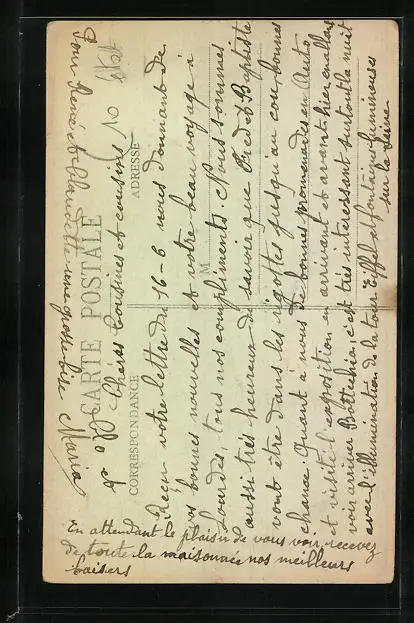 Pour Renée et Claudette une grosse bise Maria
CARTE POSTALE
Chères Cousines et cousins
CORRESPONDANCE
ADRESSE
M
Reçu votre lettre du 16-6 nous donnant de
vos bonnes nouvelles et votre beau voyage à
Lourdes, tous nos compliments. Nous sommes
aussi très heureux de savoir que Fred et Baptiste
vont être dans les rigottes jusqu'au cou, bonnes
chance. Quant à nous de bonnes promenades en Auto
et visité l'exposition en arrivant et avant hier en allant
voir arriver Bottichia, c'est très intéressant surtout la nuit
avec l'illumination de la tour Eiffel et fontaines lumineuses
sur la Seine
En attendant le plaisir de vous voir, recevez
de toute la maisonnée nos meilleurs
baisers